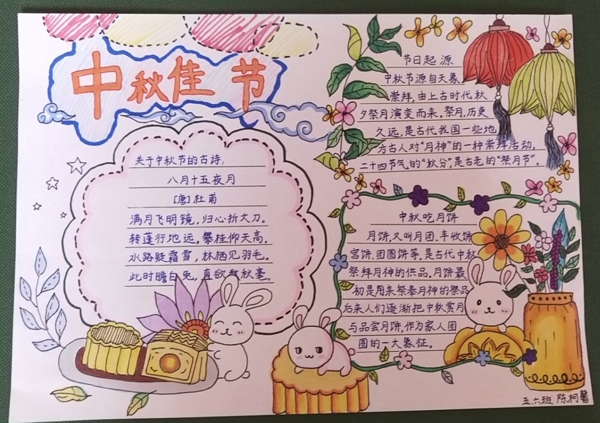 中秋佳节
关于中秋节的古诗：
八月十五夜月
[唐]杜甫
满月飞明镜，归心折大刀。
转蓬行地远，攀桂仰天高。
水路疑霜雪，林栖见羽毛。
此时瞻白兔，直欲数秋毫。
节日起源
中秋节源自天象
崇拜，由上古时代秋
夕祭月演变而来。祭月，历史
久远，是古代我国一些地
方古人对“月神”的一种崇拜活动，
二十四节气的“秋分”，是古老的“祭月节”。
中秋吃月饼
月饼，又叫月团、丰收饼、
宫饼、团圆饼等，是古代中秋
祭拜月神的供品。月饼最
初是用来祭奉月神的祭品
后来人们逐渐把中秋赏月
与品尝月饼，作为家人团
圆的一大象征。
五.六班 陈柯